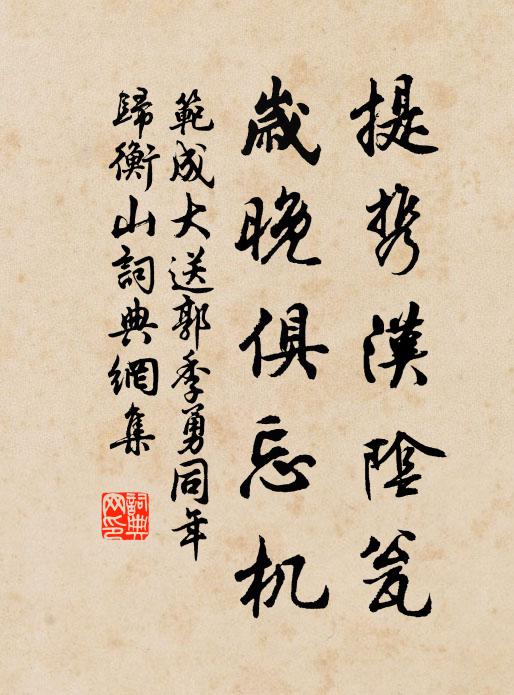 提携漢陰瓮
歳晩俱忘机
範成大送郭季勇同年
歸衡山詞典網集
詞典网印